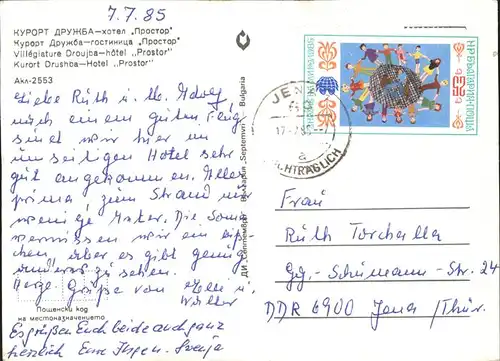 7.7.85
КУРОРТ ДРУЖБА—хотел „Простор"
Курорт Дружба—гостиница „Простор"
Villégiature Droujba—hôtel „Prostor"
Kurort Drushba—Hotel „Prostor"
Акл-2553
Liebe Ruth u. Hr.
nach einem guten Flug
sind wir hier im
Hotel sehr
gut angekommen. Alles
prima, zum Strand nur
wenige Meter. Die Sonne
vermissen wir ein biß-
chen, aber es gibt genug
anderes zu sehen.
Herzl. Grüße von u.
Walter
Es grüßen Euch beide auch ganz
herzlich Eure Svenja
Пощенски код
на местоназначението
ДИ „Септември" България „Septemvri" Bulgaria
НР БЪЛГАРИЯ·ПОЩА
JENA
17.-7.85
a
NACHTRÄGLICH
Frau
Ruth Torchalla
Gg.-Schumann-Str. 24
DDR 6900 Jena/Thür.